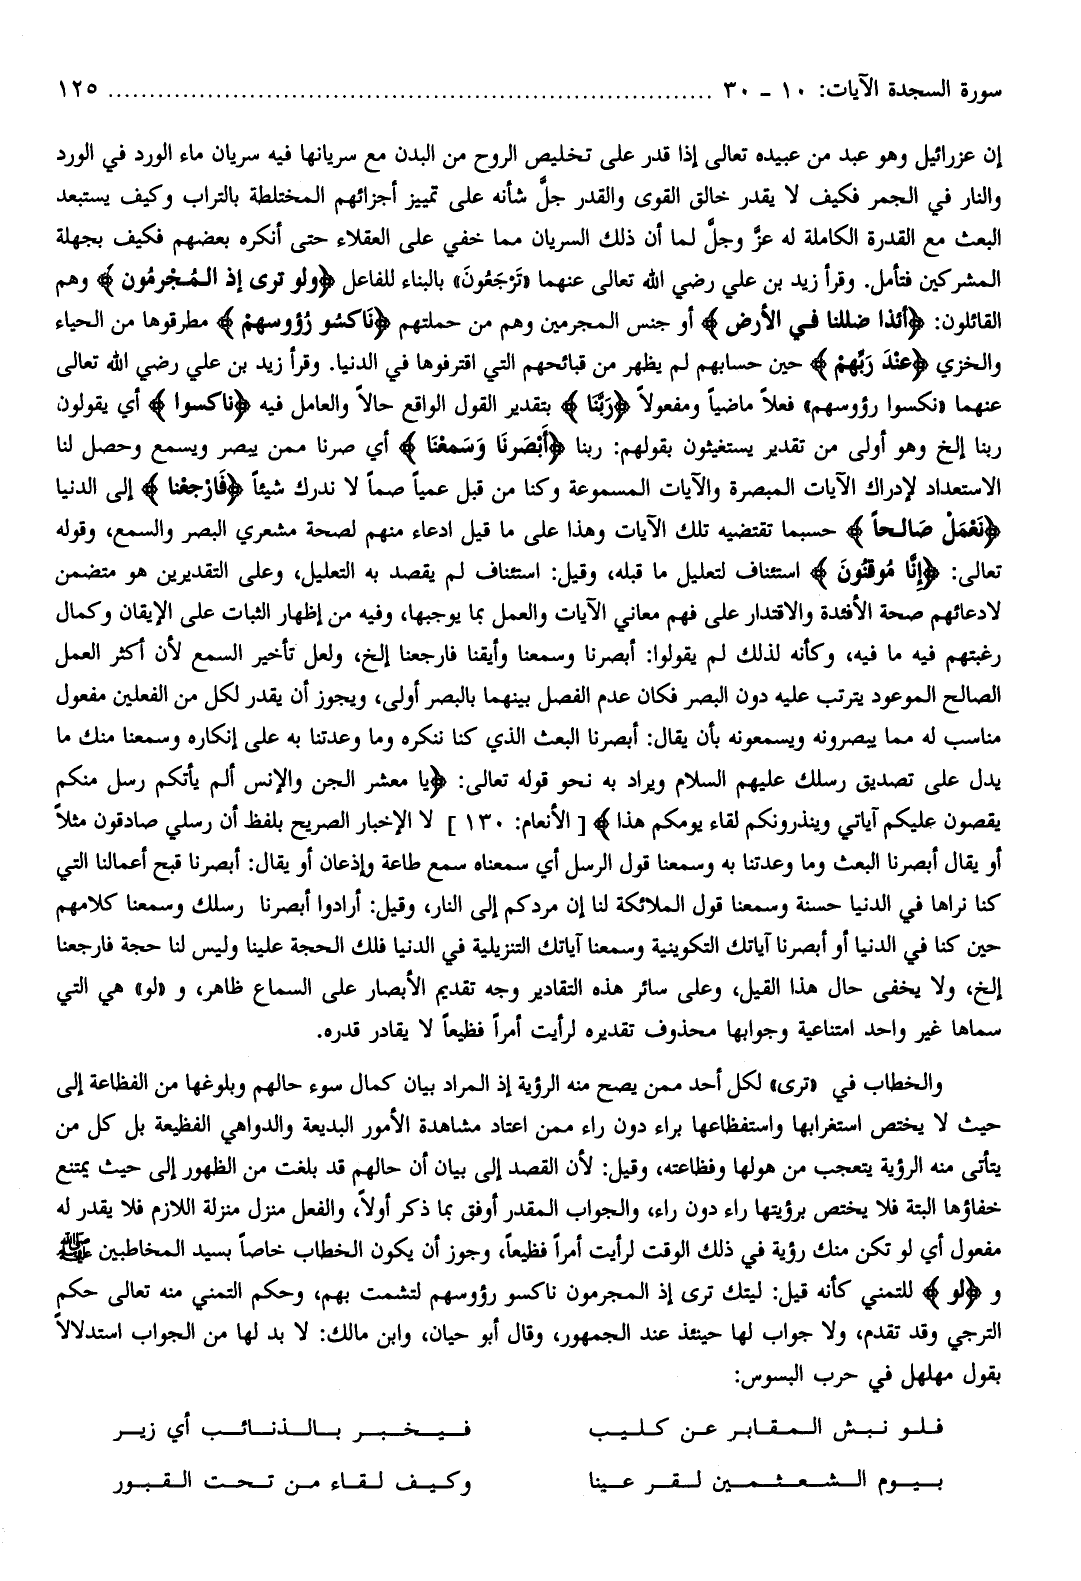 سورة السجدة الآيات: ١٠ - ٣٠ ........................................................................ ١٢٥
إن عزرائيل وهو عبد من عبيده تعالى إذا قدر على تخليص الروح من البدن مع سريانها فيه سريان ماء الورد في الورد
والنار في الجمر فكيف لا يقدر خالق القوى والقدر جلَّ شأنه على تمييز أجزائهم المختلطة بالتراب وكيف يستبعد
البعث مع القدرة الكاملة له عزَّ وجلَّ لما أن ذلك السريان مما خفي على العقلاء حتى أنكره بعضهم فكيف بجهلة
المشركين فتأمل. وقرأ زيد بن علي رضي الله تعالى عنهما «تَرْجَعُونَ» بالبناء للفاعل ﴿ولو ترى إذ المُجْرِمُون﴾ وهم
القائلون: ﴿أئذا ضللنا في الأرض﴾ أو جنس المجرمين وهم من حملتهم ﴿نَاكسُو رُؤوسهمْ﴾ مطرقوها من الحياء
والخزي ﴿عنْدَ رَبِّهمْ﴾ حين حسابهم لم يظهر من قبائحهم التي اقترفوها في الدنيا. وقرأ زيد بن علي رضي الله تعالى
عنهما «نكسوا رؤوسهم» فعلاً ماضياً ومفعولاً ﴿رَبَّنَا﴾ بتقدير القول الواقع حالاً والعامل فيه ﴿ناكسوا﴾ أي يقولون
ربنا إلخ وهو أولى من تقدير يستغيثون بقولهم: ربنا ﴿أَبْصَرنَا وَسَمعْنَا﴾ أي صرنا ممن يبصر ويسمع وحصل لنا
الاستعداد لإدراك الآيات المبصرة والآيات المسموعة وكنا من قبل عمياً صماً لا ندرك شيئاً ﴿فَارْجعْنا﴾ إلى الدنيا
﴿نَعْمَلْ صَالحاً﴾ حسبما تقتضيه تلك الآيات وهذا على ما قيل ادعاء منهم لصحة مشعري البصر والسمع، وقوله
تعالى: ﴿إنَّا مُوقنُونَ﴾ استئناف لتعليل ما قبله، وقيل: استئناف لم يقصد به التعليل، وعلى التقديرين هو متضمن
لادعائهم صحة الأفئدة والاقتدار على فهم معاني الآيات والعمل بما يوجبها، وفيه من إظهار الثبات على الإيقان وكمال
رغبتهم فيه ما فيه، وكأنه لذلك لم يقولوا: أبصرنا وسمعنا وأيقنا فارجعنا إلخ، ولعل تأخير السمع لأن أكثر العمل
الصالح الموعود يترتب عليه دون البصر فكان عدم الفصل بينهما بالبصر أولى، ويجوز أن يقدر لكل من الفعلين مفعول
مناسب له مما يبصرونه ويسمعونه بأن يقال: أبصرنا البعث الذي كنا ننكره وما وعدتنا به على إنكاره وسمعنا منك ما
يدل على تصديق رسلك عليهم السلام ويراد به نحو قوله تعالى: ﴿يا معشر الجن والإنس ألم يأتكم رسل منكم
يقصون عليكم آياتي وينذرونكم لقاء يومكم هذا﴾ [ الأنعام: ١٣٠ ] لا الإخبار الصريح بلفظ أن رسلي صادقون مثلاً
أو يقال أبصرنا البعث وما وعدتنا به وسمعنا قول الرسل أي سمعناه سمع طاعة وإذعان أو يقال: أبصرنا قبح أعمالنا التي
كنا نراها في الدنيا حسنة وسمعنا قول الملائكة لنا إن مردكم إلى النار، وقيل: أرادوا أبصرنا رسلك وسمعنا كلامهم
حين كنا في الدنيا أو أبصرنا آياتك التكوينية وسمعنا آياتك التنزيلية في الدنيا فلك الحجة علينا وليس لنا حجة فارجعنا
إلخ، ولا يخفى حال هذا القيل، وعلى سائر هذه التقادير وجه تقديم الأبصار على السماع ظاهر، و «لو» هي التي
سماها غير واحد امتناعية وجوابها محذوف تقديره لرأيت أمراً فظيعاً لا يقادر قدره.
والخطاب في «ترى» لكل أحد ممن يصح منه الرؤية إذ المراد بيان كمال سوء حالهم وبلوغها من الفظاعة إلى
حيث لا يختص استغرابها واستفظاعها براء دون راء ممن اعتاد مشاهدة الأمور البديعة والدواهي الفظيعة بل كل من
يتأتى منه الرؤية يتعجب من هولها وفظاعته، وقيل: لأن القصد إلى بيان أن حالهم قد بلغت من الظهور إلى حيث يمتنع
خفاؤها البتة فلا يختص برؤيتها راء دون راء، والجواب المقدر أوفق بما ذكر أولاً، والفعل منزل منزلة اللازم فلا يقدر له
مفعول أي لو تكن منك رؤية في ذلك الوقت لرأيت أمراً فظيعاً، وجوز أن يكون الخطاب خاصاً بسيد المخاطبين ﷺ
و ﴿لو﴾ للتمني كأنه قيل: ليتك ترى إذ المجرمون ناكسو رؤوسهم لتشمت بهم، وحكم التمني منه تعالى حكم
الترجي وقد تقدم، ولا جواب لها حينئذ عند الجمهور، وقال أبو حيان، وابن مالك: لا بد لها من الجواب استدلالاً
بقول مهلهل في حرب البسوس:
فلو نبش المقابر عن كليب فيخبر بالذنائب أي زير
بيوم الشعثمين لقر عينا وكيف لقاء من تحت القبور